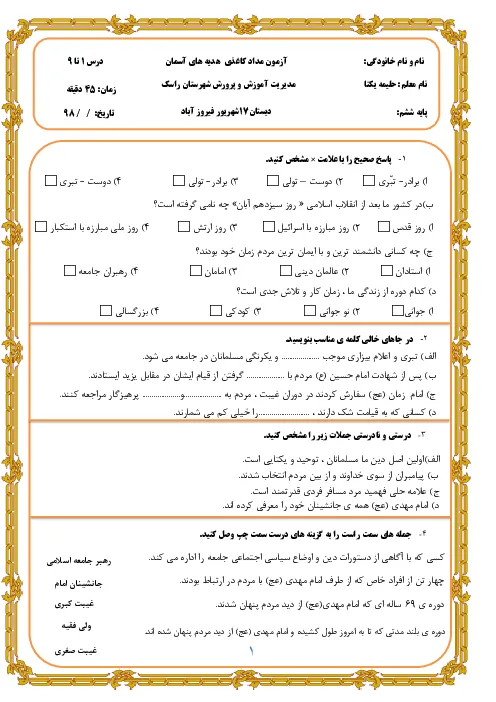 نام و نام خانوادگی: آزمون مداد کاغذی هدیه های آسمان درس ۱ تا ۹
نام معلم: حلیمه یکتا مدیریت آموزش و پرورش شهرستان راسک زمان: ۴۵ دقیقه
پایه ششم: دبستان ۱۷شهریور فیروز آباد تاریخ: / / ۹۸
۱- پاسخ صحیح را با علامت × مشخص کنید.
۱) برادر- تبّری ۲) دوست – تولی ۳) برادر- تولی ۴) دوست - تبری
ب)در کشور ما بعد از انقلاب اسلامی « روز سیزدهم آبان» چه نامی گرفته است؟
۱) روز قدس ۲) روز مبارزه با اسرائیل ۳) روز ارتش ۴) روز ملی مبارزه با استکبار
ج) چه کسانی دانشمند ترین و با ایمان ترین مردم زمان خود بودند؟
۱) استادان ۲) عالمان دینی ۳) امامان ۴) رهبران جامعه
د) کدام دوره از زندگی ما ، زمان کار و تلاش جدی است؟
۱) جوانی ۲) نو جوانی ۳) کودکی ۴) بزرگسالی
۲- در جاهای خالی کلمه ی مناسب بنویسید.
الف) تبری و اعلام بیزاری موجب .................. و یکرنگی مسلمانان در جامعه می شود.
ب) پس از شهادت امام حسین (ع) مردم با .................. گرفتن از قیام ایشان در مقابل یزید ایستادند.
ج) امام زمان (عج) سفارش کردند در دوران غیبت ، مردم به ..................و.................. پرهیزگار مراجعه کنند.
د) کسانی که به قیامت شک دارند ، ........................را خیلی کم می شمارند.
۳- درستی و نادرستی جملات زیر را مشخص کنید.
الف)اولین اصل دین ما مسلمانان ، توحید و یکتایی است.
ب) پیامبران از سوی خداوند و از بین مردم انتخاب شدند.
ج) علامه حلی فهمید مرد مسافر فردی قدرتمند است.
د) امام مهدی (عج) همه ی جانشینان خود را معرفی کرده اند.
۴- جمله های سمت راست را به گزینه های درست سمت چپ وصل کنید.
کسی که با آگاهی از دستورات دین و اوضاع سیاسی اجتماعی جامعه را اداره می کند. رهبر جامعه اسلامی
چهار تن از افراد خاص که از طرف امام مهدی (عج) با مردم در ارتباط بودند. جانشینان امام
دوره ی ۶۹ ساله ای که امام مهدی(عج) از دید مردم پنهان شدند. غیبت کبری
ولی فقیه
دوره ی بلند مدتی که تا به امروز طول کشیده و امام مهدی (عج) از دید مردم پنهان شده اند.
غیبت صغری
۱